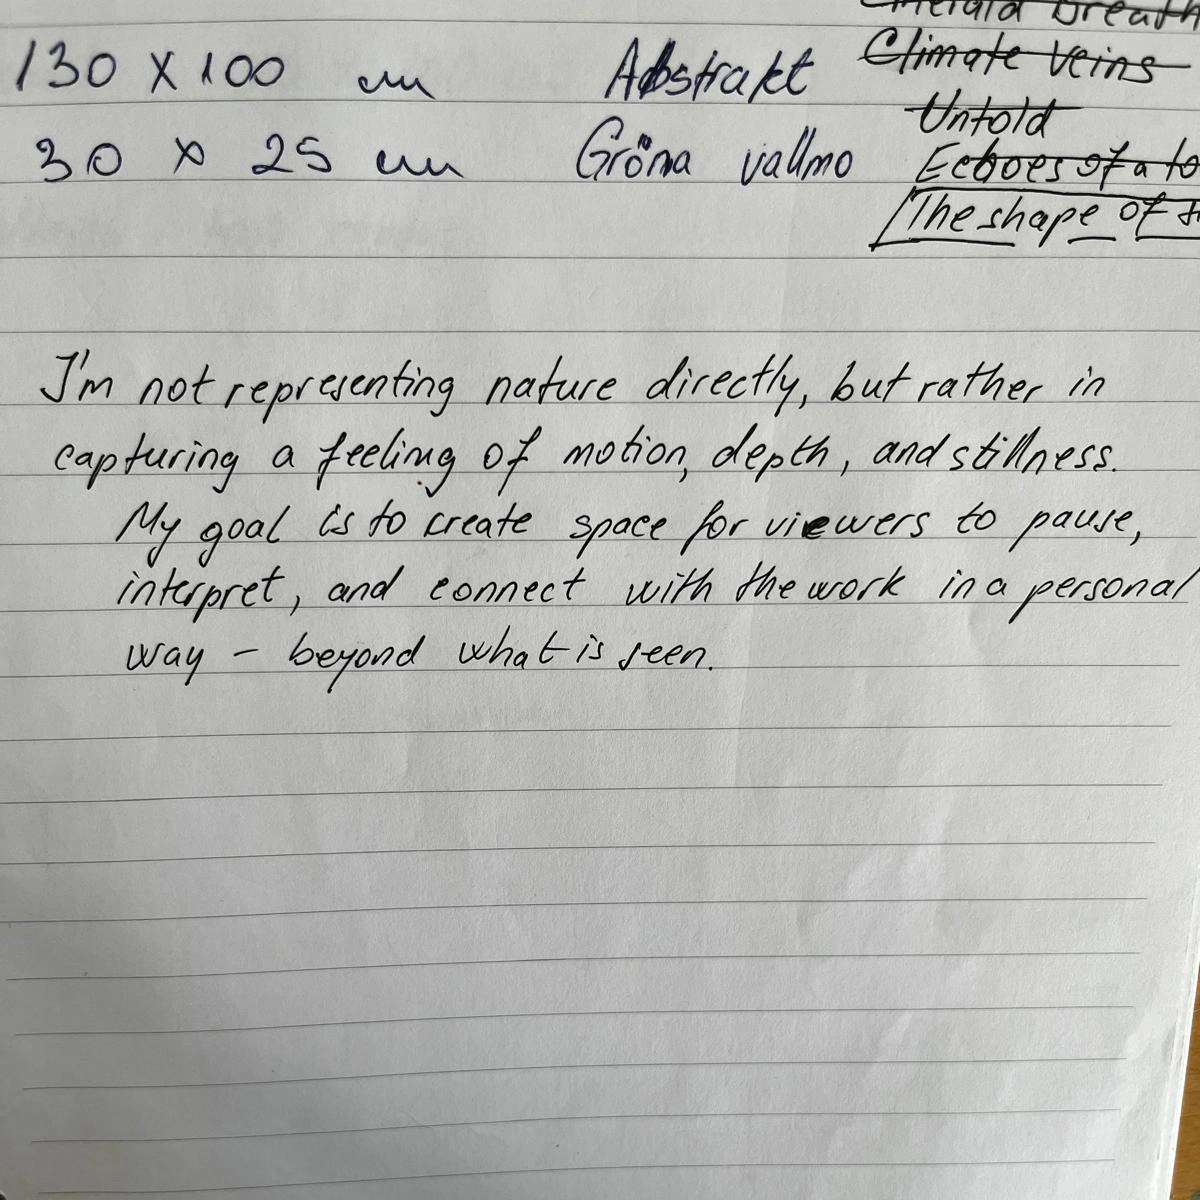 Emerald Breath
Climate Veins
130 x 100 cm Abstrakt
Untold
30 x 25 cm Gröna vallmo
Echoes of a
The shape of
I'm not representing nature directly, but rather in
capturing a feeling of motion, depth, and stillness.
My goal is to create space for viewers to pause,
interpret, and connect with the work in a personal
way - beyond what is seen.